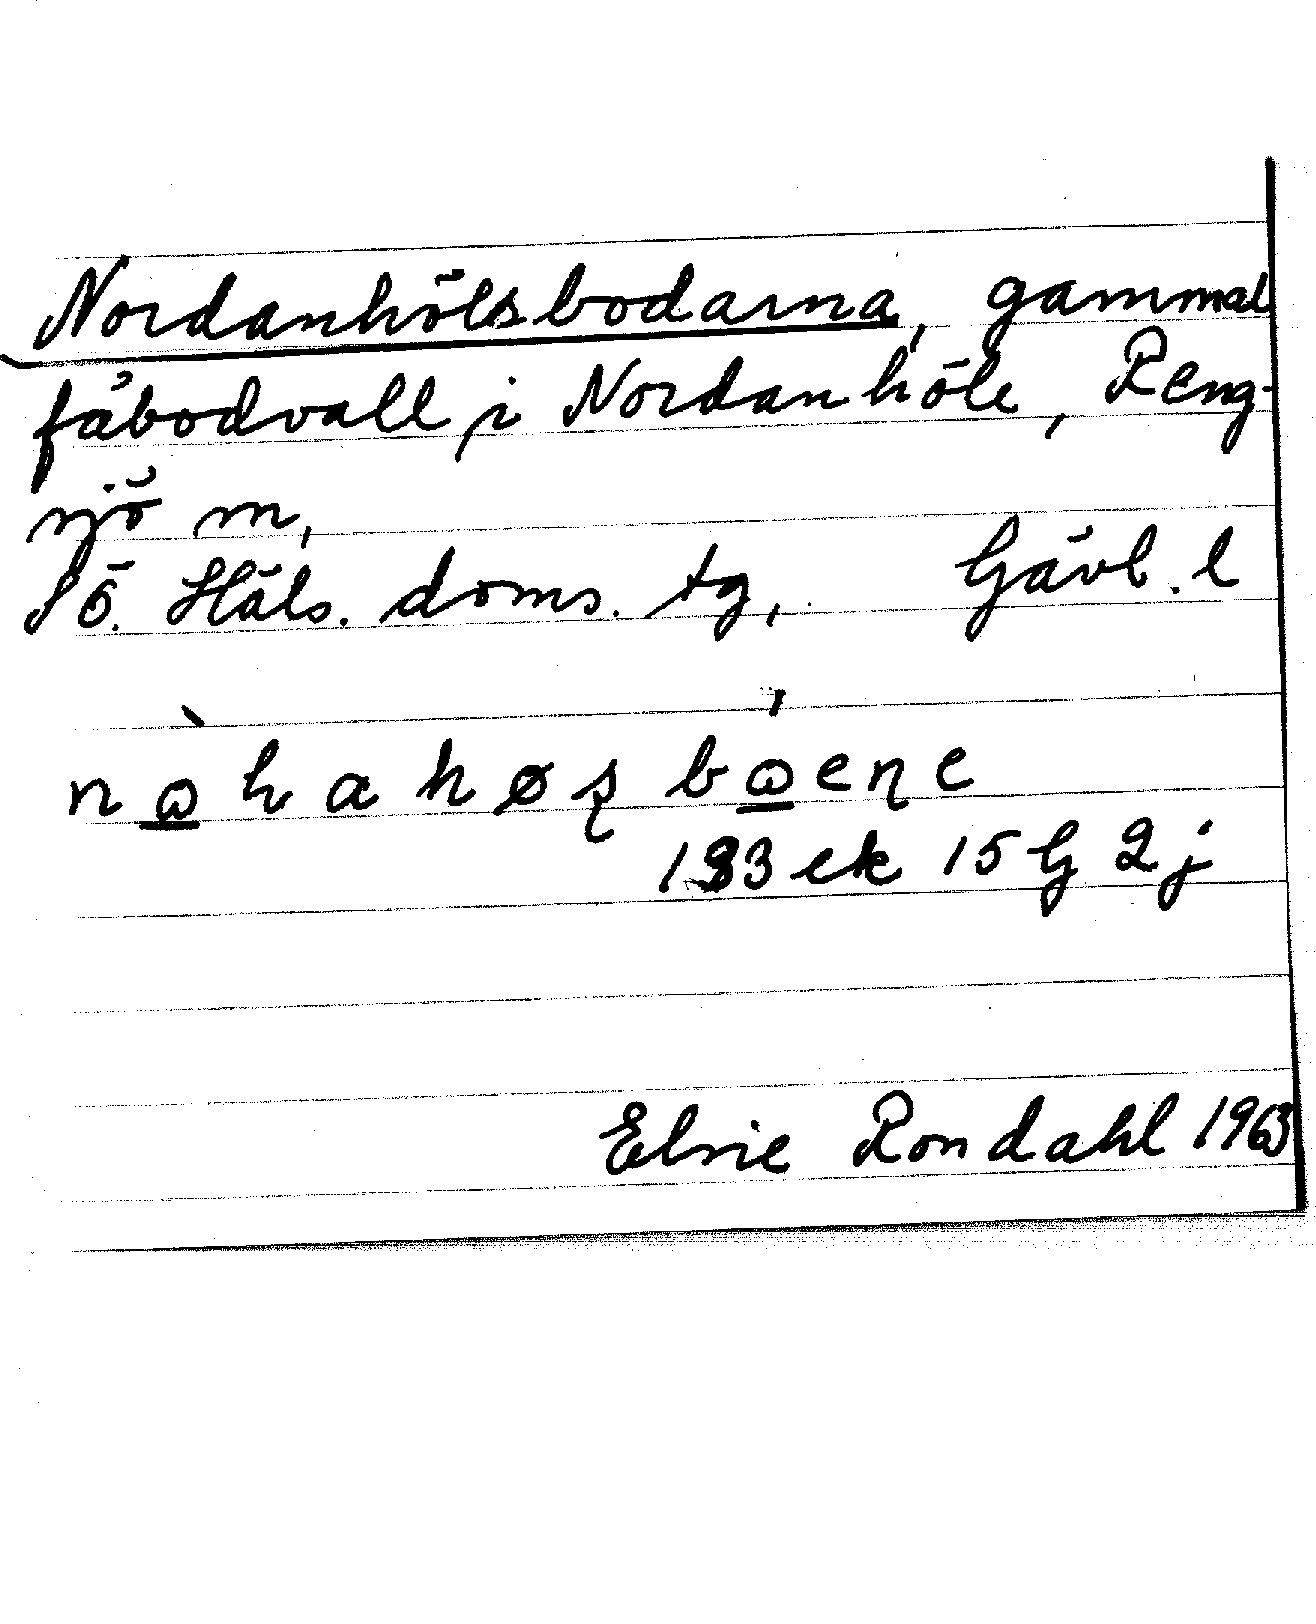 Nordanhölsbodarna, gammal
fäbodvall i Nordanhöle, Reng-
sjö sn,
Sö. Häls. doms. tg, Gävl. l
133 ek 15 G 2 j
Elsie Rondahl 1963